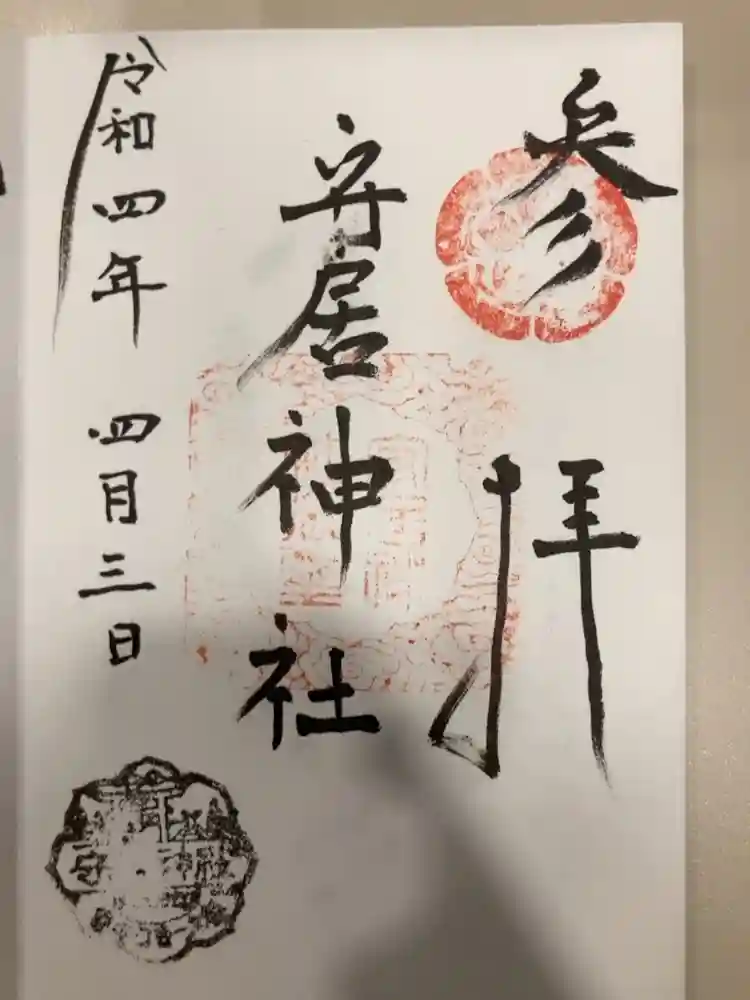 参拝
安居神社
令和四年 四月三日